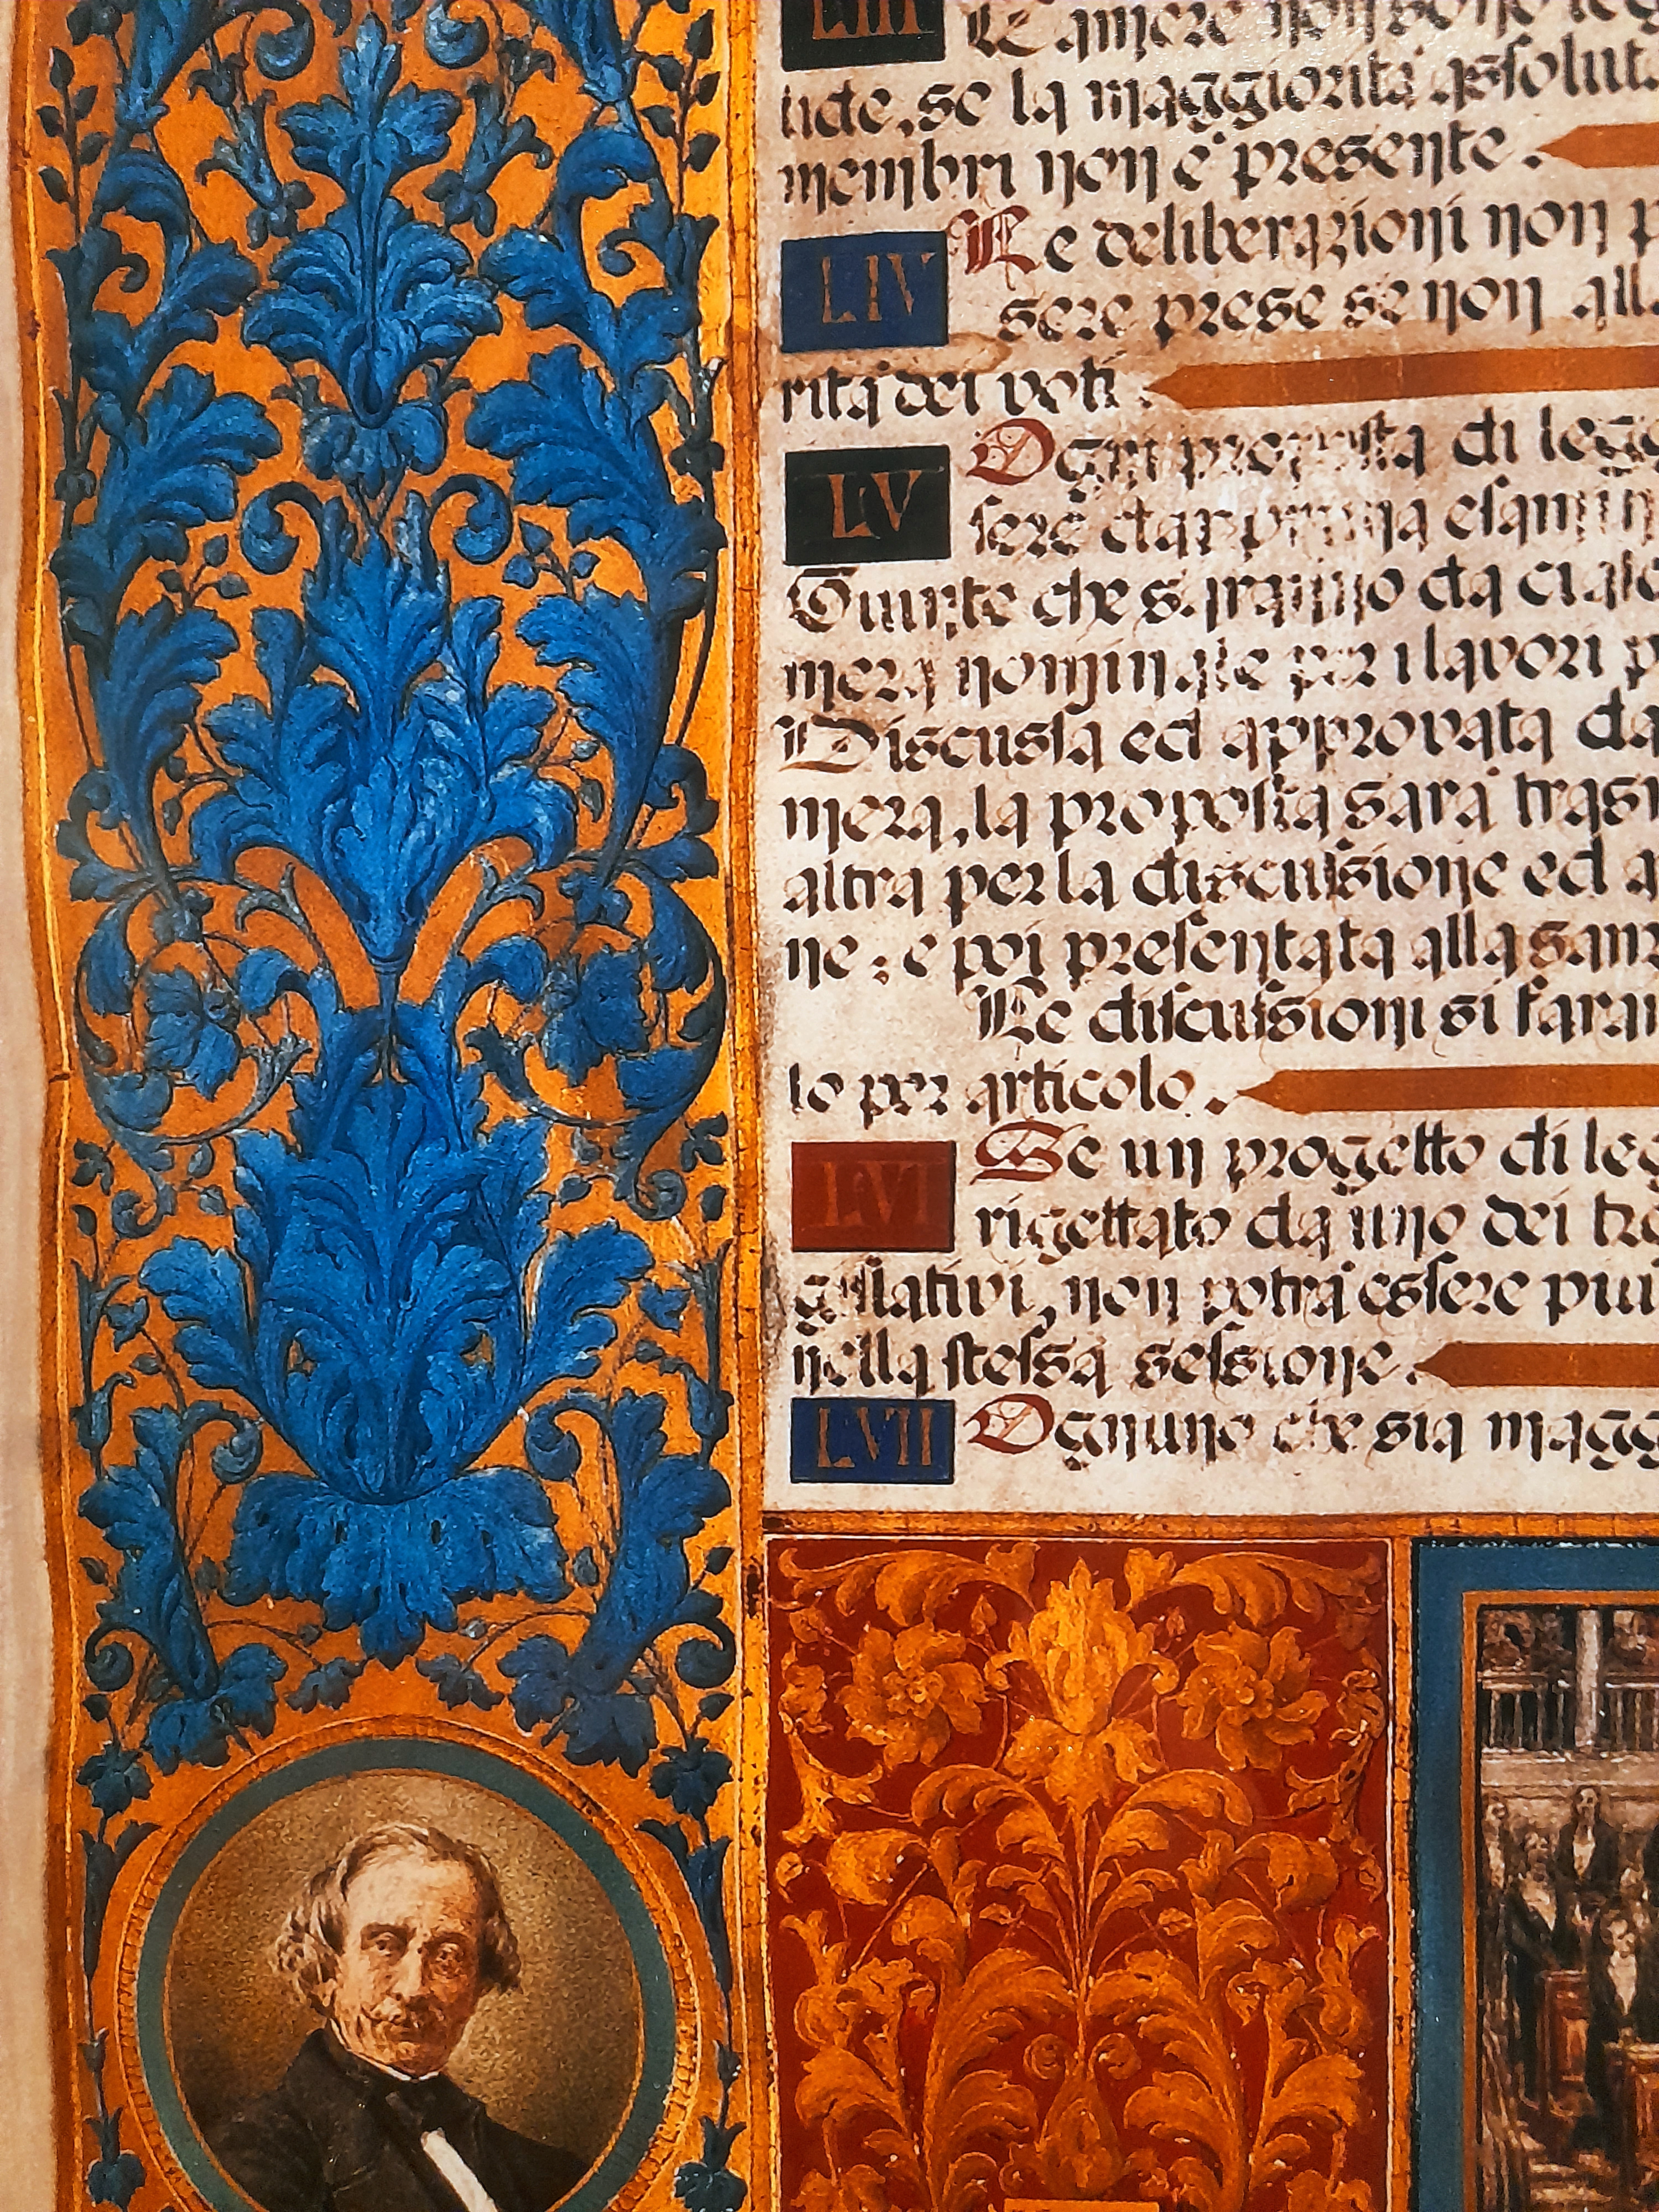 LIII Le Camere non sono leg
tide, se la maggiorità assolut
membri non è presente.
LIV Le deliberazioni non p
sere prese se non alla
rità dei voti.
LV Ogni proposta di legg
sere dapprima esamin
Giunte che saranno da ciasc
mera nominate per i lavori p
Discussa ed approvata da
mera, la proposta sarà trasm
altra per la discussione ed a
ne: e poi presentata alla san
Le discussioni si faran
to per articolo.
LVI Se un progetto di leg
rigettato da uno dei tre
gislativi, non potrà essere più
nella stessa sessione.
LVII Ognuno che sia magg